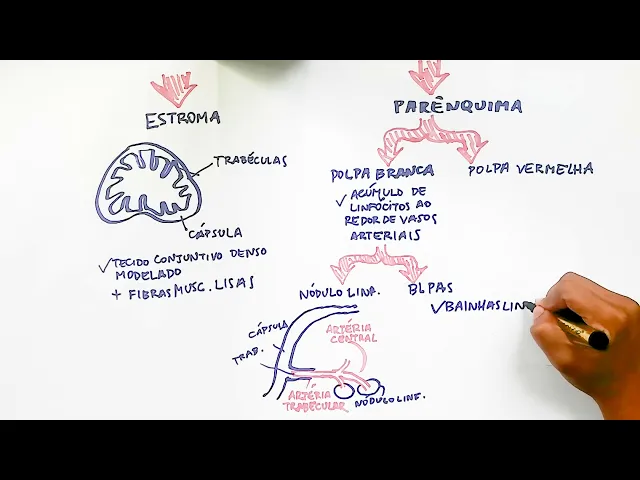 ESTROMA
TRABÉCULAS
CÁPSULA
✓ TECIDO CONJUNTIVO DENSO
MODELADO
+ FIBRAS MUSC. LISAS
PARÊNQUIMA
POLPA BRANCA
POLPA VERMELHA
✓ ACÚMULO DE
LINFÓCITOS AO
REDOR DE VASOS
ARTERIAIS
NÓDULO LINA.
BLPAS
✓ BAINHAS LIN
CÁPSULA
TRAB.
ARTÉRIA
CENTRAL
ARTÉRIA
TRABECULAR
NÓDULO LINF.